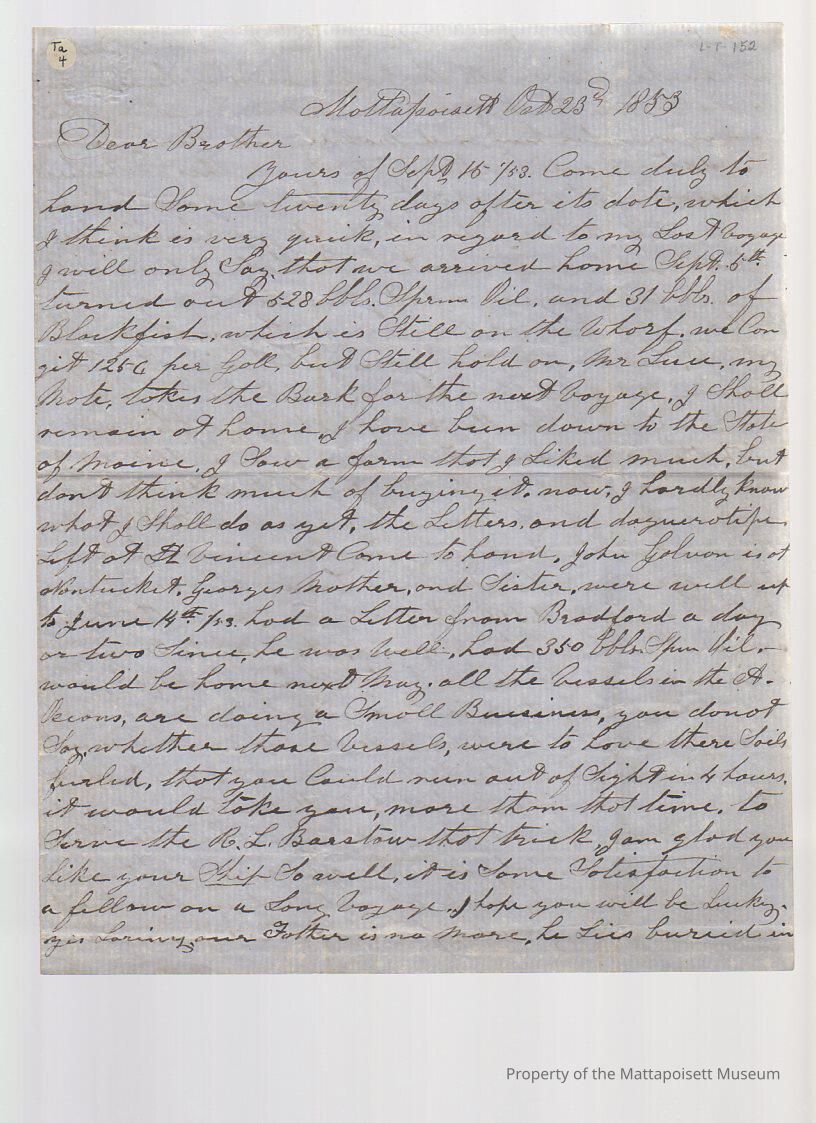 Ta
4
L-T-152
Mattapoisett Oct 23d 1853
Dear Brother
Yours of Sept 15th /53. Come duly to
hand Some twenty days after its date, which
I think is very quick, in regard to my Last Voyage
I will only Say, that we arrived home Sept. 5th.
turned out 528 bbls. Sperm Oil, and 31 bbls. of
Blackfish, which is Still on the Wharf. we Can
git 125c per Gall, but Still hold on, Mr Luce, my
Mate, takes the Bark for the next Voyage, I Shall
remain at home, I have been down to the State
of Maine, I Saw a farm that I Liked much, but
dont think much of buying it. now, I hardly know
what I Shall do as yet, the Letters. and daguerotipe
Left at St Vincent Came to hand, John Galvon is at
Nantucket. Georges Mother, and Sister, were well up
to June 14th /53. had a Letter from Bradford a day
or two Since, he was well, had 350 bbls. Spm Oil.
would be home next May. all the Vessels in the A.
Oceans, are doing a Small Buisiness, you donot
Say, whether those Vessels, were to have there Sails
furled, that you Could run out of Sight in 4 hours.
it would take you, more than that time, to
Serve the R. L. Barstow that trick, I am glad you
Like your Ship So well, it is Some Satisfaction to
a fellow on a Long Voyage, I hope you will be Lucky.
yes Loring, our Father is no more, he Lies buried in
Property of the Mattapoisett Museum